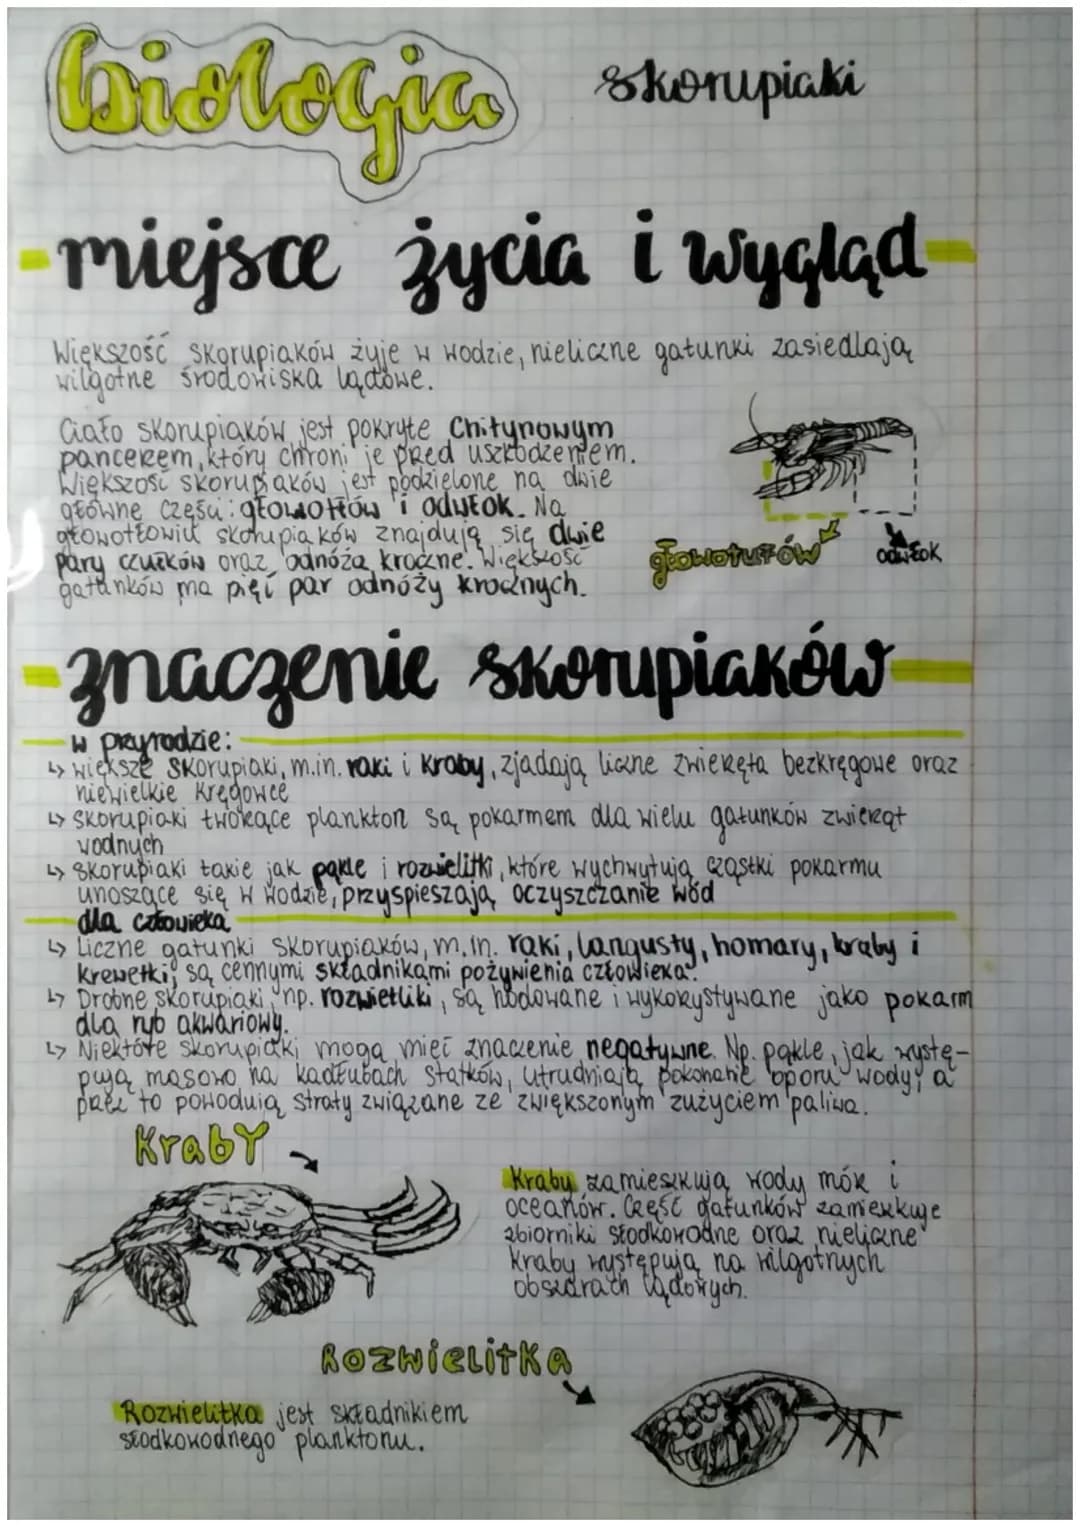 biologia
skorupiaki
miejsce życia i wygląd
Większość skorupiaków żyje w wodzie, nieliczne gatunki zasiedlają
wilgotne środowiska lądowe.
Ciało skorupiaków jest pokryte chitynowym
pancerzem, który chroni je przed uszkodzeniem.
Większość skorupiaków jest podzielone na dwie
główne części: głowotłów i odwłok. Na
głowotłowiu skorupiaków znajdują się dwie
pary czułków oraz odnóża kroczne. Większość
gatunków ma pięć par odnóży krocznych.
głowotułów
odwłok
znaczenie skorupiaków
w przyrodzie:
↳ większe skorupiaki, m.in. raki i kraby, zjadają liczne zwierzęta bezkręgowe oraz
niewielkie kręgowce
↳ skorupiaki tworzące plankton są pokarmem dla wielu gatunków zwierząt
wodnych
↳ skorupiaki takie jak pąkle i rozwielitki, które wychwytują cząstki pokarmu
unoszące się w wodzie, przyspieszają oczyszczanie wód
dla człowieka
↳ Liczne gatunki skorupiaków, m.in. raki, langusty, homary, kraby i
krewetki, są cennymi składnikami pożywienia człowieka.
↳ Drobne skorupiaki, np. rozwietliki, są hodowane i wykorzystywane jako pokarm
dla ryb akwariowy.
↳ Niektóre skorupiaki mogą mieć znaczenie negatywne. Np. pąkle, jak wystę-
pują masowo na kadłubach statków, utrudniają pokonanie oporu wody, a
przez to powodują straty związane ze zwiększonym zużyciem paliwa.
Kraby
Kraby zamieszkują wody mórz i
oceanów. Część gatunków zamieszkuje
zbiorniki słodkowodne oraz nieliczne
kraby występują na wilgotnych
obszarach lądowych.
Rozwielitka
Rozwielitka jest składnikiem
słodkowodnego planktonu.